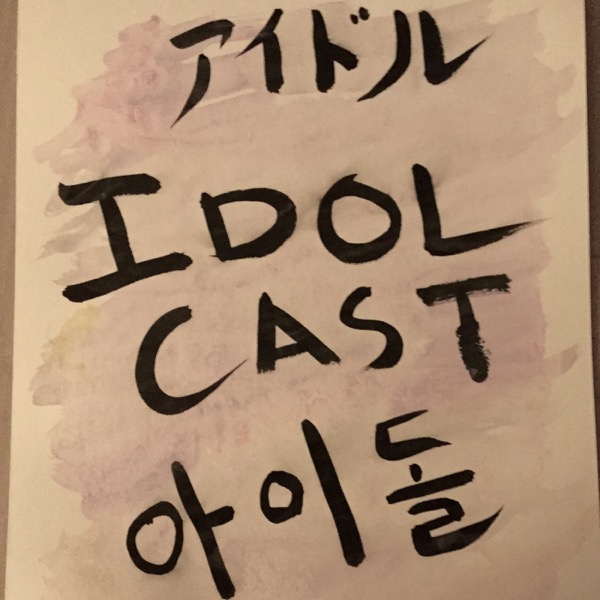 アイドル
IDOL
CAST
아이돌